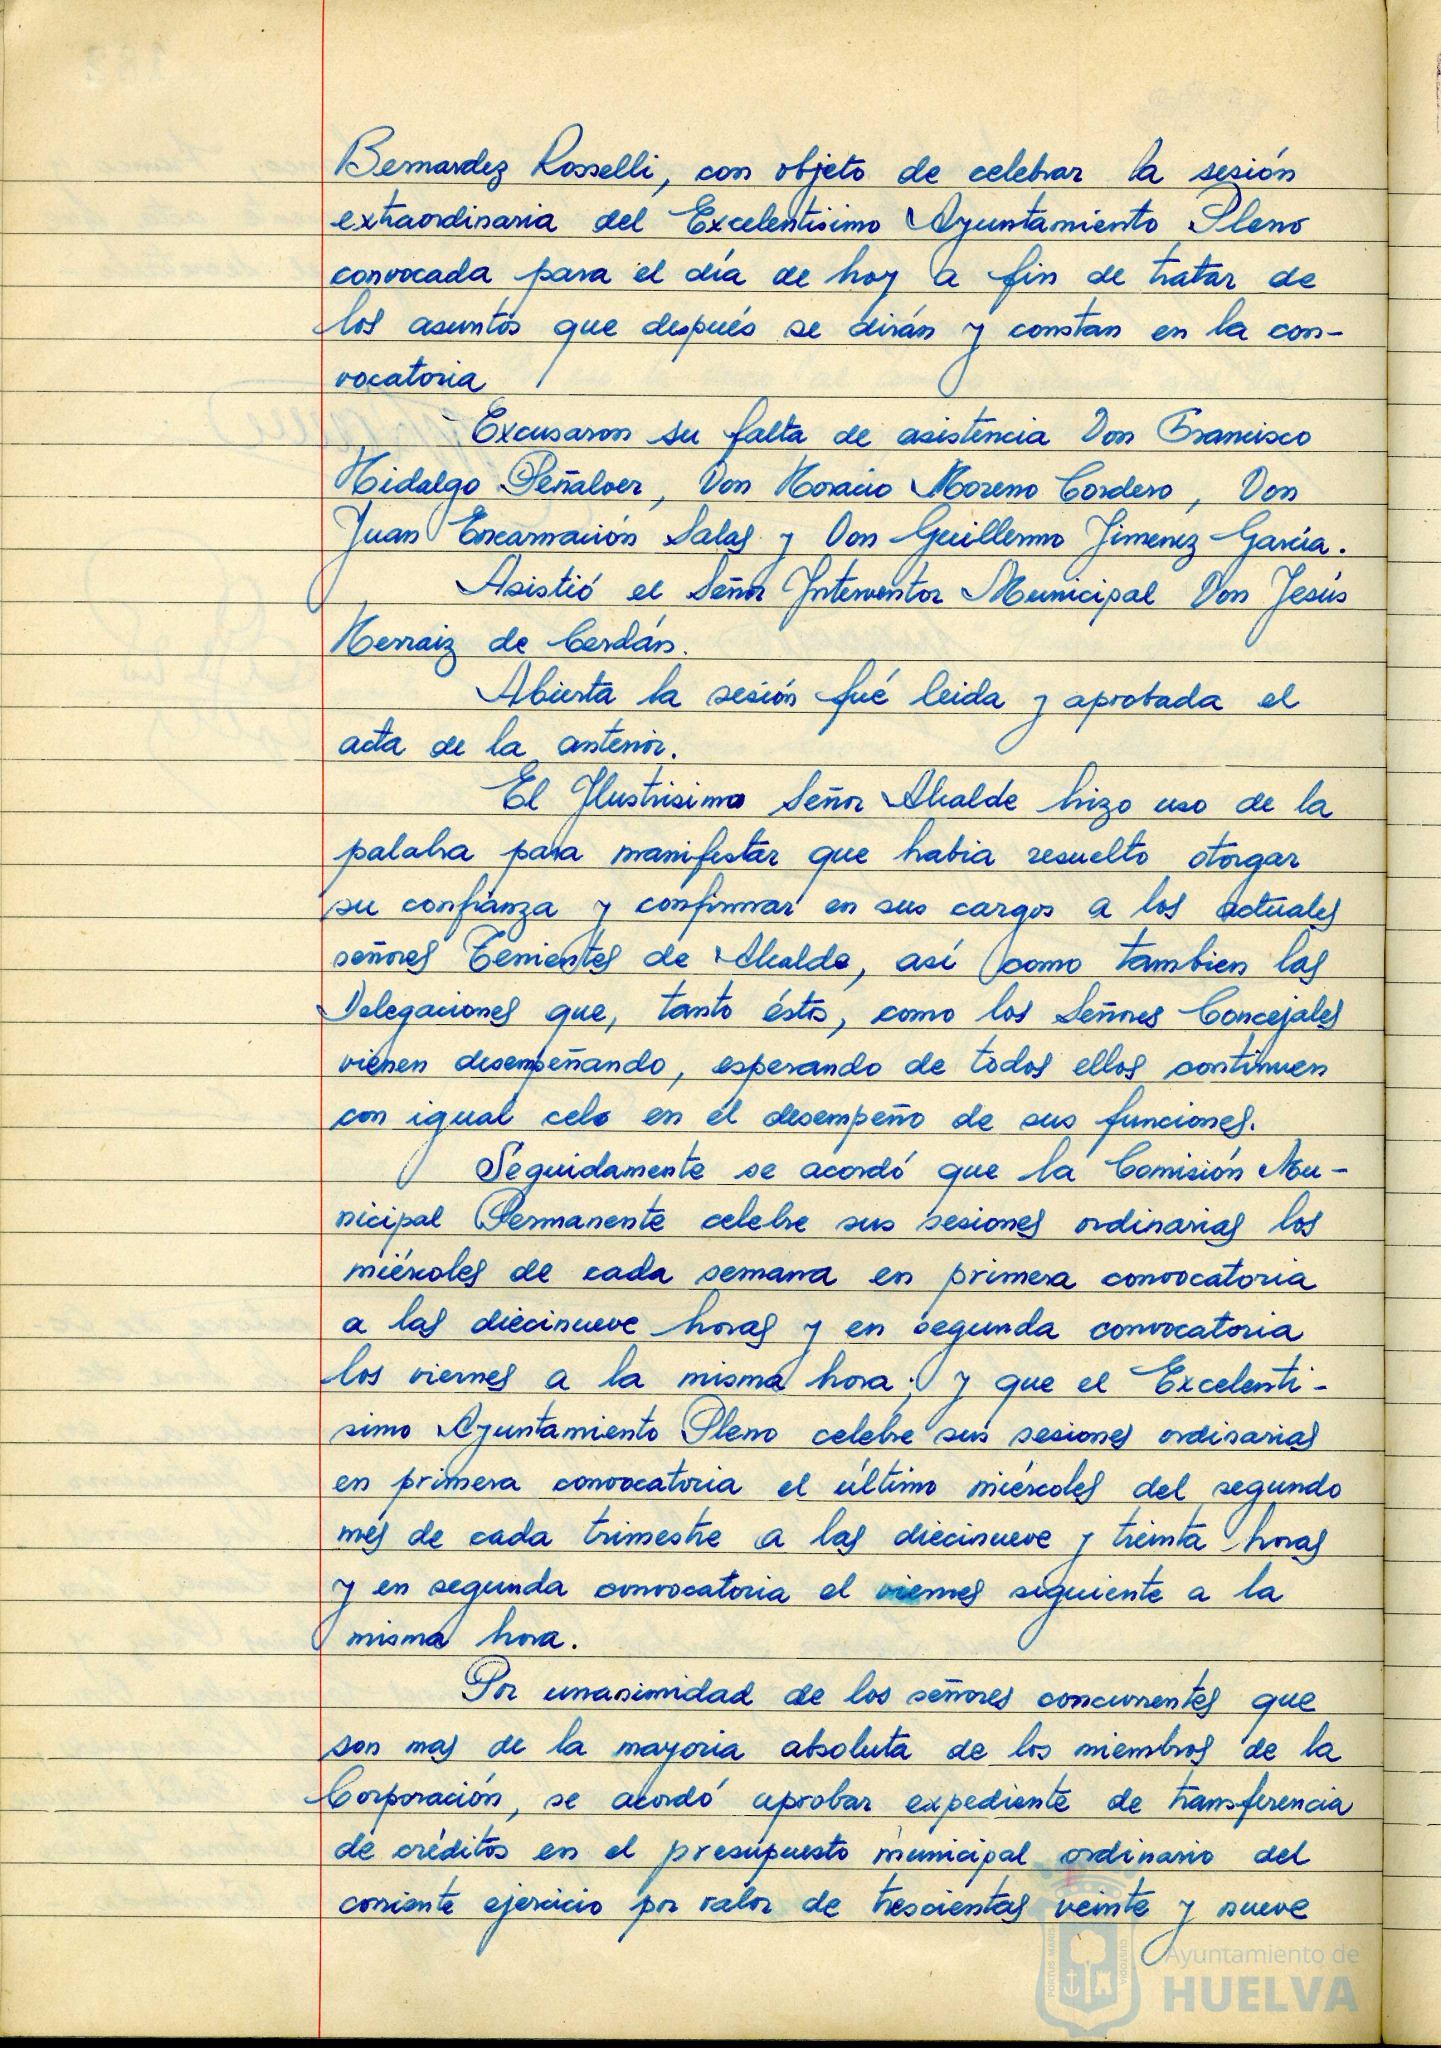 Bernardez Rosselli, con objeto de celebrar la sesión
extraordinaria del Excelentísimo Ayuntamiento Pleno
convocada para el día de hoy a fin de tratar de
los asuntos que después se dirán y constan en la con-
vocatoria
Excusaron su falta de asistencia Don Francisco
Hidalgo Peñalver, Don Horacio Moreno Cordero, Don
Juan Encarnación Salas y Don Guillermo Jimenez García.
Asistió el Señor Interventor Municipal Don Jesús
Herraiz de Cerdán.
Abierta la sesión fué leida y aprobada el
acta de la anterior.
El Ilustrisimo Señor Alcalde hizo uso de la
palabra para manifestar que habia resuelto otorgar
su confianza y confirmar en sus cargos a los actuales
señores Tenientes de Alcalde, así como tambien las
Delegaciones que, tanto éstos, como los Señores Concejales
vienen desempeñando, esperando de todos ellos continuen
con igual celo en el desempeño de sus funciones.
Seguidamente se acordó que la Comisión Mu-
nicipal Permanente celebre sus sesiones ordinarias los
miércoles de cada semana en primera convocatoria
a las diecinueve horas y en segunda convocatoria
los viernes a la misma hora; y que el Excelenti-
simo Ayuntamiento Pleno celebre sus sesiones ordinarias
en primera convocatoria el último miércoles del segundo
mes de cada trimestre a las diecinueve y treinta horas
y en segunda convocatoria el viernes siguiente a la
misma hora.
Por unanimidad de los señores concurrentes que
son mas de la mayoria absoluta de los miembros de la
Corporación, se acordó aprobar expediente de transferencia
de créditos en el presupuesto municipal ordinario del
corriente ejercicio por valor de trescientas veinte y nueve
PORTUS MARIS
CUSTODIA
Ayuntamiento de
HUELVA